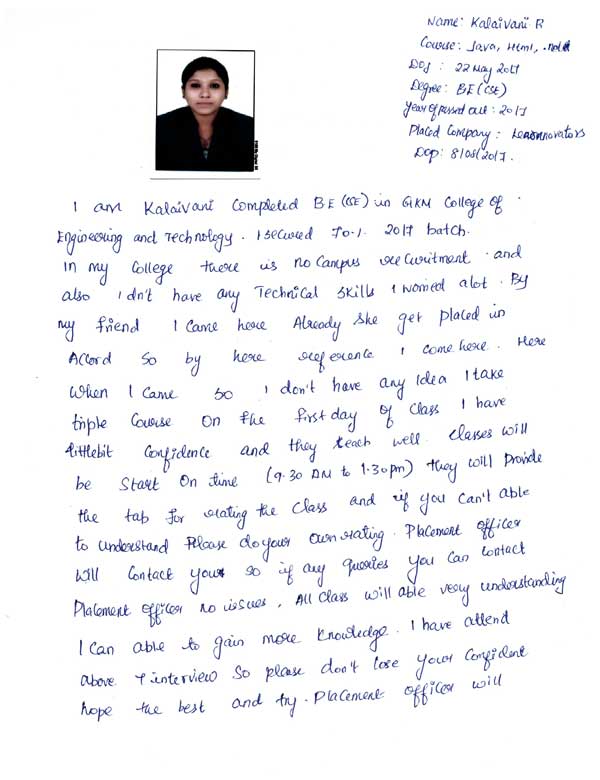 Name: Kalaivani R
Course: Java, Html, .net
DOJ : 22 May 2017
Degree: BE (CSE)
Year of passed out : 2017
Placed Company :
Dop: 8/08/2017.
I am Kalaivani Completed BE (CSE) in GKM College of
Engineering and Technology . I secured 70.1. 2017 batch.
In my College there is no Campus recuritment . and
also I dn't have any Technical Skills I worried alot . By
my friend I Came here Already she get placed in
Accord so by here reference I come here . Here
When I Came so I don't have any Idea I take
triple Course on the first day of class I have
littlebit Confidence and they teach well. classes will
be Start On time (9.30 AM to 1.30 pm) they will Provide
the tab for rating the Class and if you Can't able
to understand Please do your Own rating . Placement officer
will Contact your so if any queries you Can Contact
Placement Officer no issues . All Class will able very understanding
I Can able to gain more Knowledge . I have attend
above 7 interview so please don't lose your Confident
hope the best and try . Placement officer will